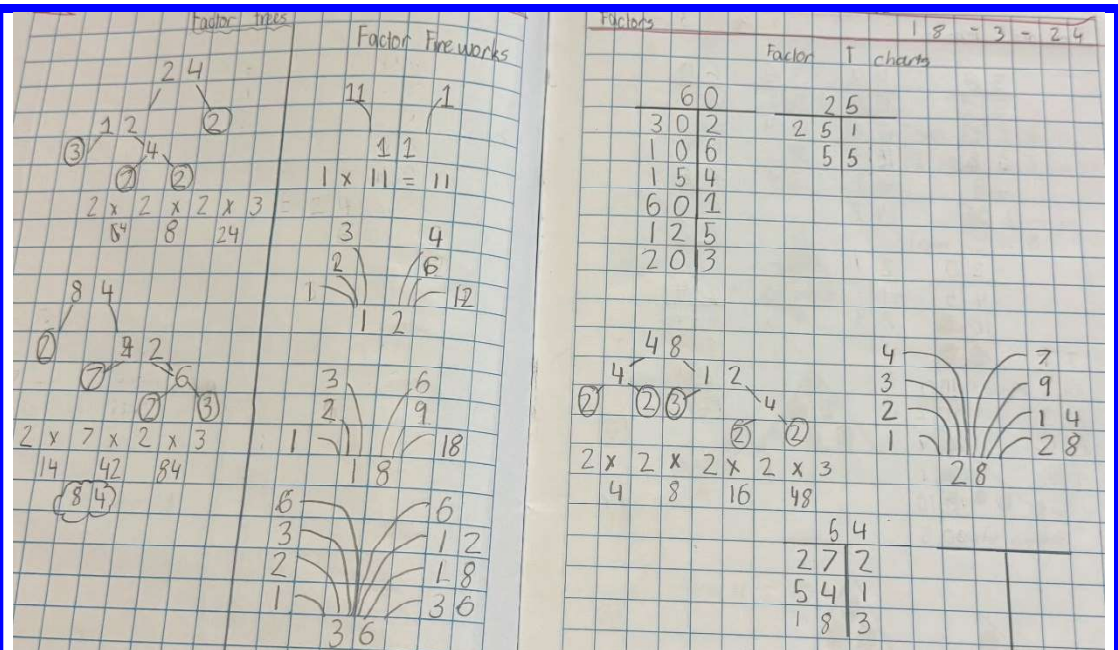 Factor trees
24
12 2
3 4
2 2
2 x 2 x 2 x 3 = 24
8 24
84
2 42
7 6
2 3
2 x 7 x 2 x 3
14 42 84
84
Factor Fireworks
11 1
11
1 x 11 = 11
3 4
2 6
1 12
12
3 6
2 9
1 18
18
6 6
3 12
2 18
1 36
36
Factors
18-3-24
Factor T charts
60
30 2
10 6
15 4
60 1
12 5
20 3
25
25 1
5 5
48
4 12
2 2 3 4
2 2
2 x 2 x 2 x 2 x 3
4 8 16 48
4 7
3 9
2 14
1 28
28
54
27 2
54 1
18 3